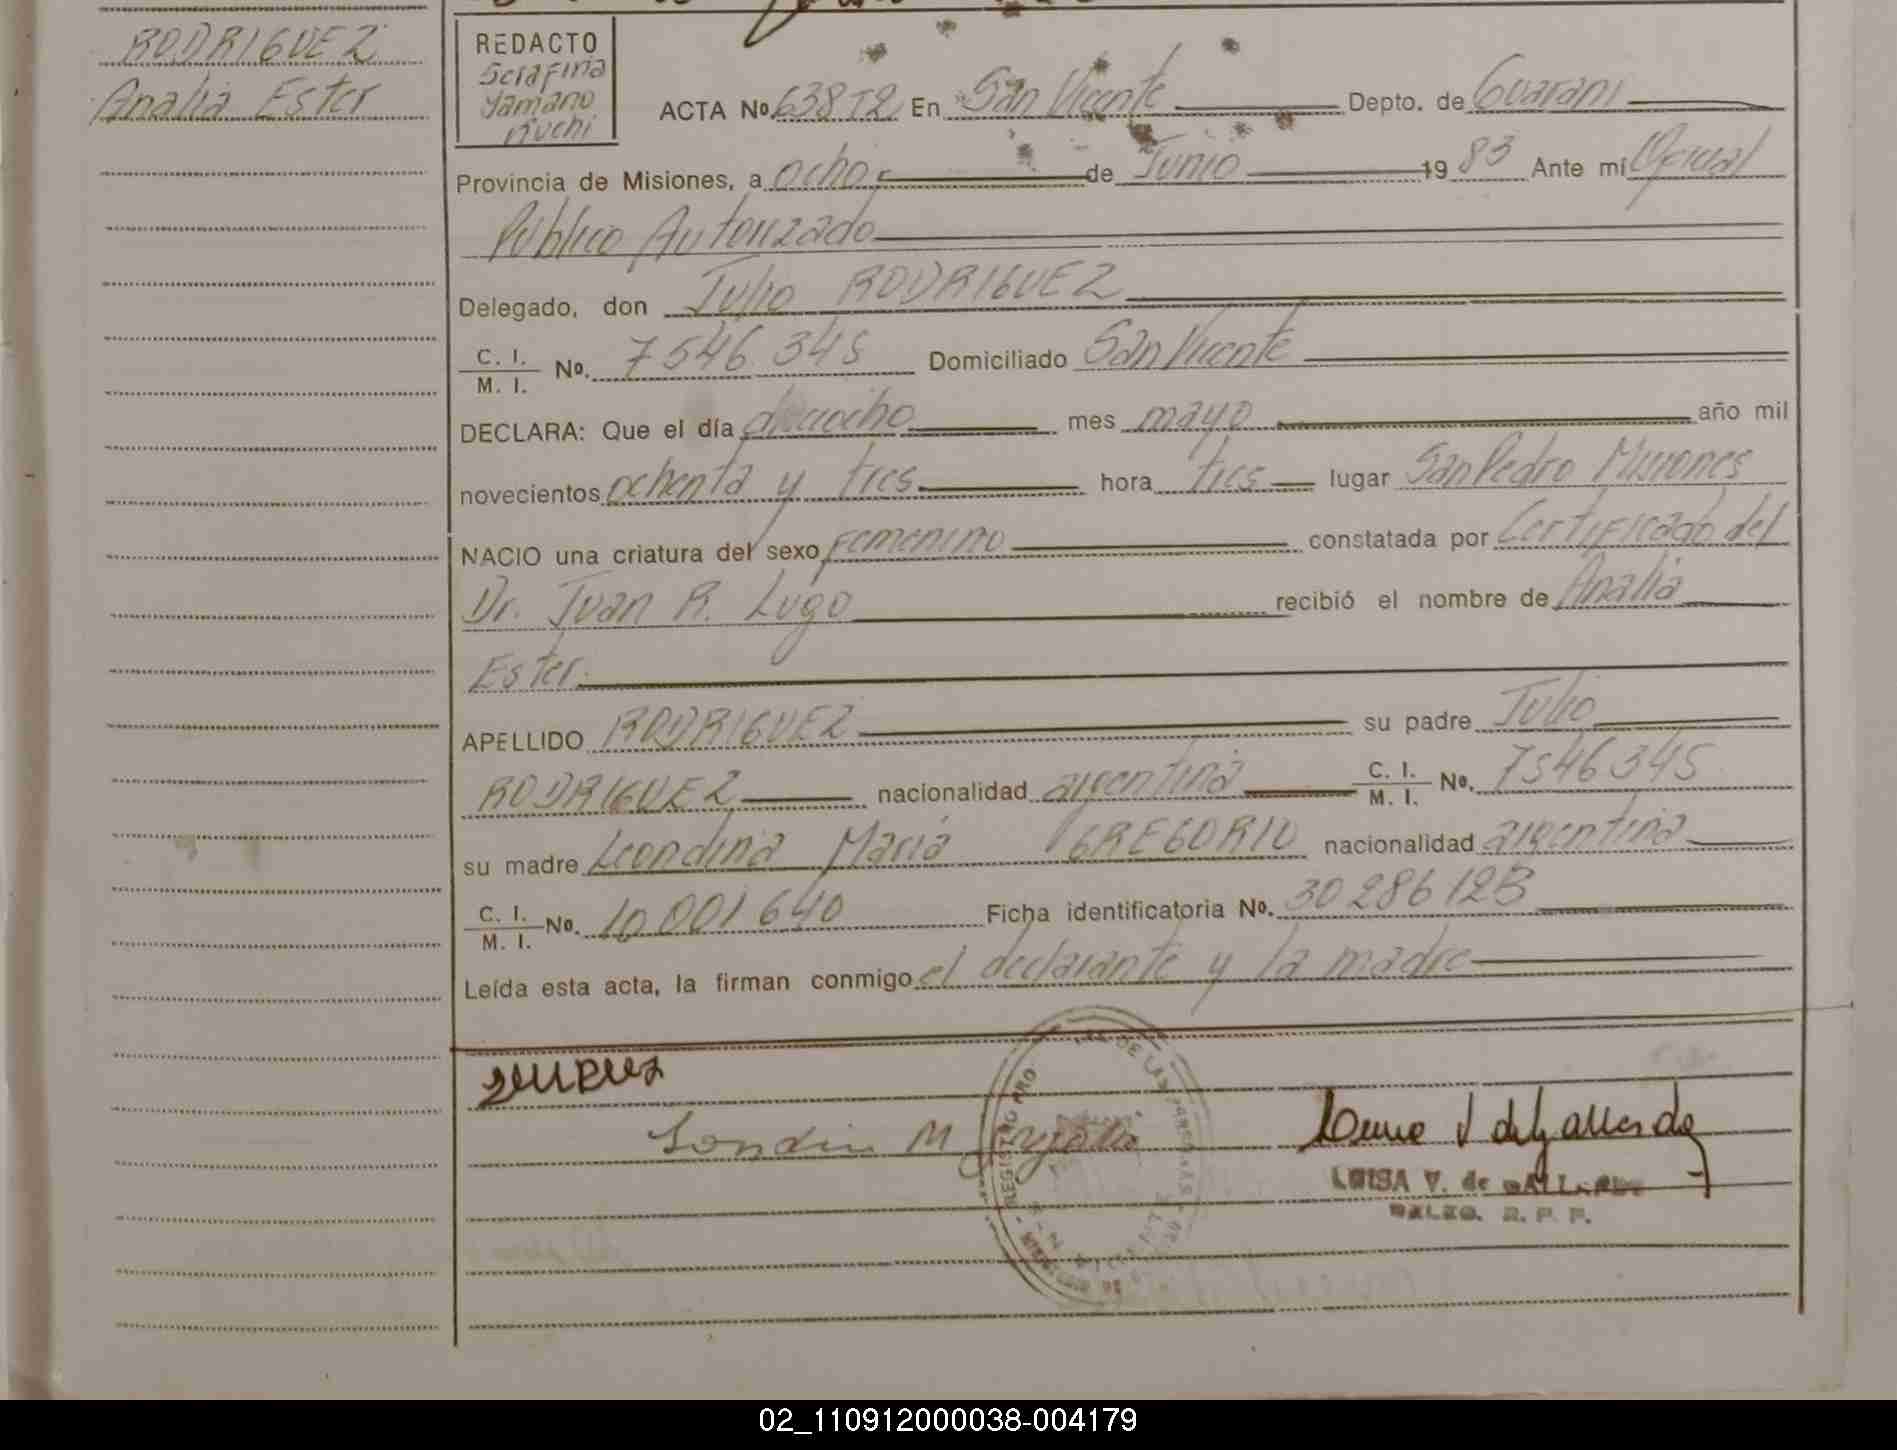 RODRIGUEZ
Analia Ester
REDACTO
Serafina
Yamano
ACTA Nº 638 T2 En San Vicente Depto. de Guarani
Provincia de Misiones, a ocho de Junio 1983 Ante mí Oficial
Público Autorizado
Delegado, don Julio RODRIGUEZ
C. I.
M. I. Nº. 7546.345 Domiciliado San Vicente
DECLARA: Que el día dieciocho mes mayo año mil
novecientos ochenta y tres hora tres lugar San Pedro Misiones
NACIO una criatura del sexo Femenino constatada por Certificado del
Dr. Juan R. Lugo recibió el nombre de Analia
Ester.
APELLIDO RODRIGUEZ su padre Julio
RODRIGUEZ nacionalidad argentina C. I.
M. I. Nº. 7546345
su madre Leondina Maria GREGORIO nacionalidad argentina
C. I.
M. I. Nº. 10001640 Ficha identificatoria Nº. 30286128
Leída esta acta, la firman conmigo el declarante y la madre
LUISA V. de GALLARDO
R. P. P.
REGISTRO DE LAS PERSONAS
02_110912000038-004179